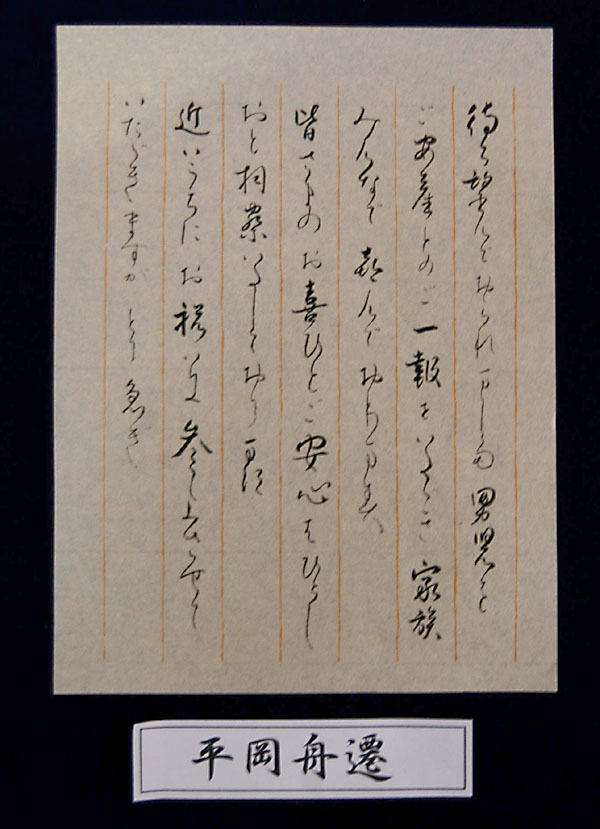 待ち望んでおられました男児を
ご安産とのご一報をいただき家族
みんなで喜んでおります
皆さまのお喜びとご安心はひとし
おと拝察いたしております
近いうちにお祝いに参上させて
いただきますがとり急ぎ
平岡舟遷